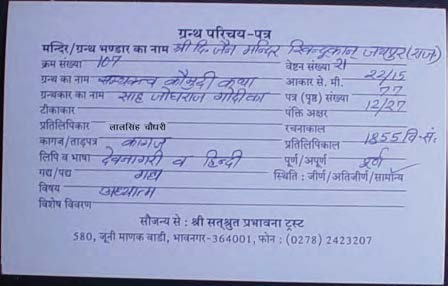 ग्रन्थ परिचय-पत्र
मन्दिर/ग्रन्थ भण्डार का नाम श्री दि. जैन मन्दिर खिन्दूकान, जयपुर (राज)
क्रम संख्या 107 वेष्टन संख्या 21
ग्रन्थ का नाम सम्यक्त्व कौमुदी कथा आकार से. मी. 22/15
ग्रन्थकार का नाम साह जोधराज गोदीका पत्र (पृष्ठ) संख्या 77
टीकाकार पंक्ति अक्षर 12/27
प्रतिलिपिकार लालसिंह चौधरी रचनाकाल
कागज/ताड़पत्र कागज प्रतिलिपिकाल 1855 वि.सं.
लिपि व भाषा देवनागरी व हिन्दी पूर्ण/अपूर्ण पूर्ण
गद्य/पद्य गद्य स्थिति : जीर्ण/अतिजीर्ण/सामान्य
विषय अध्यात्म
विशेष विवरण
सौजन्य से : श्री सत्श्रुत प्रभावना ट्रस्ट
580, जूनी माणक वाडी, भावनगर-364001, फोन : (0278) 2423207